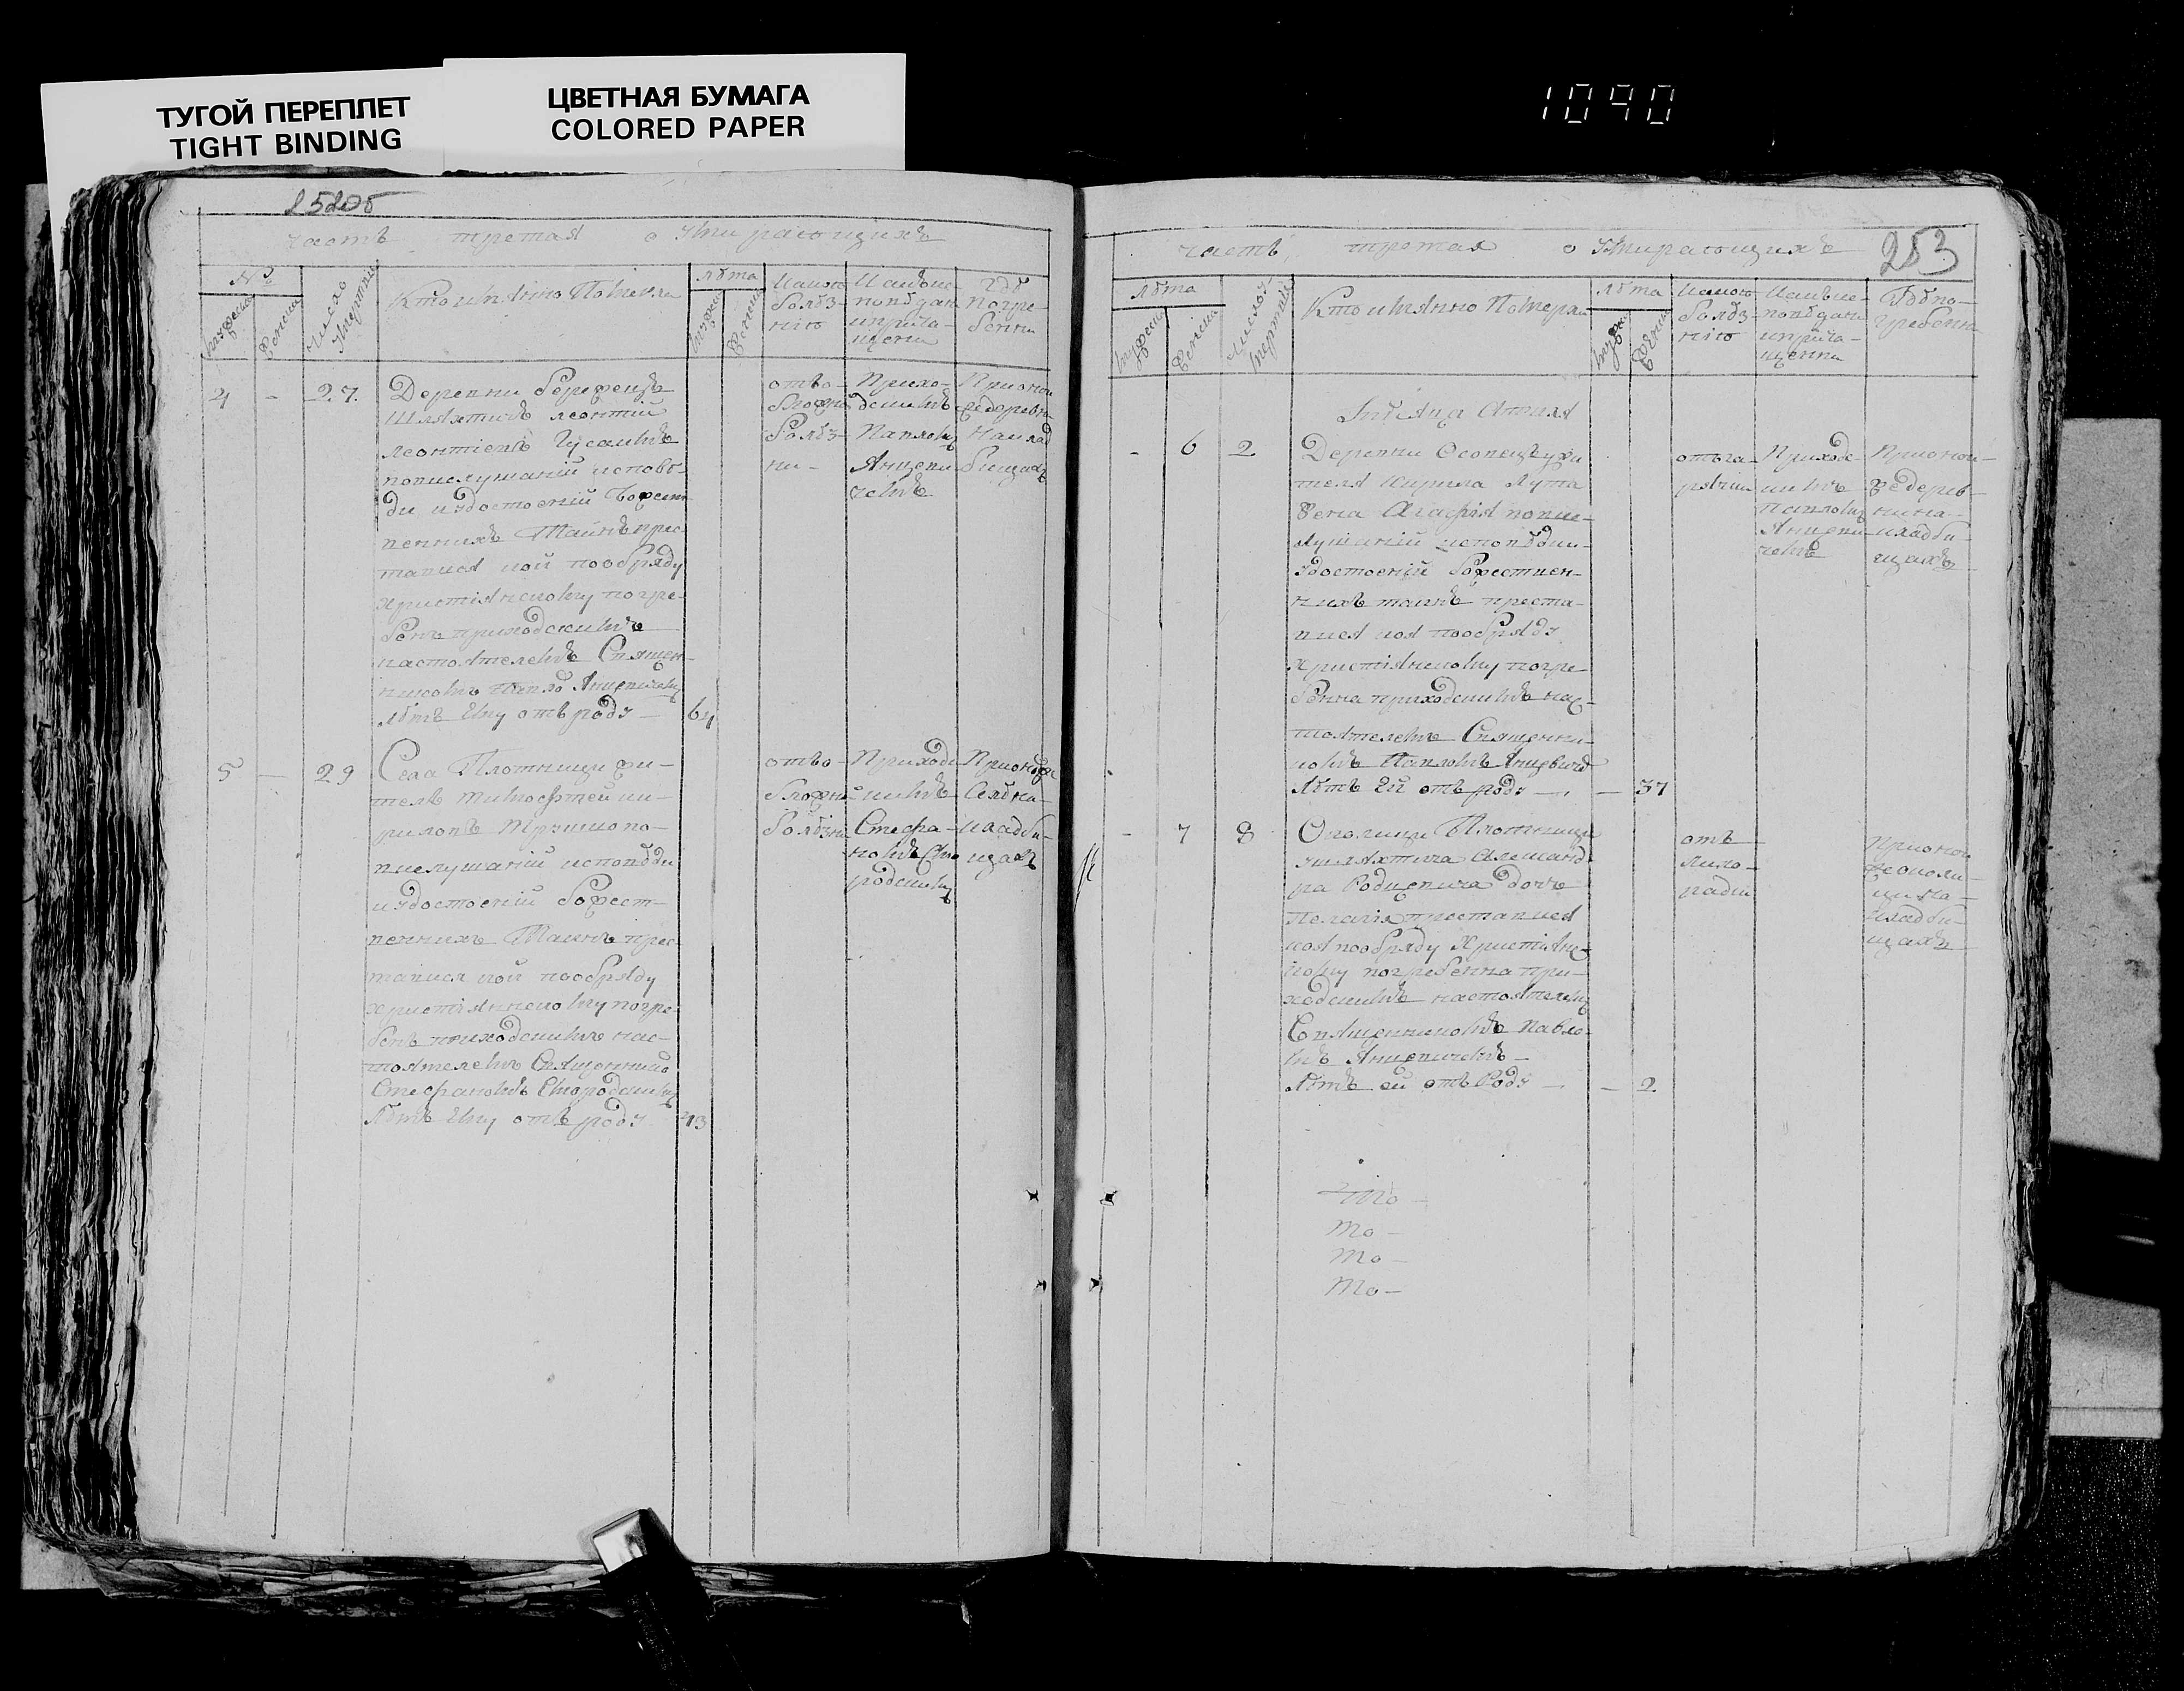 ТУГОЙ ПЕРЕПЛЕТ
TIGHT BINDING
ЦВЕТНАЯ БУМАГА
COLORED PAPER
1090
252об
часть третая о умирающихъ
№
мужеска
женска
Число
умертвія
Кто имянно Померли
лѣта
мужеска
женска
Какою
болѣз-
нію
Кѣмъ ис-
повѣдан
и прича-
щены
Гдѣ
погре-
бенны
4 - 27
Деревни
Шляхтичъ Леонтій
Леонтіевъ
по выслушаній исповѣ-
ди и удостоеній божест
венныхъ Таинъ прес
тавися кой по обряду
христіянскому погре-
бенъ приходскимъ
настоятелемъ Священ-
никомъ
лѣтъ Ему отъ роду - 64
отъ во-
болѣз-
ни -
Прихо-
дскимъ
Павломъ
Янцеви
чемъ
При оной
же деревни
на клад
бищахъ
5 - 29
Села Плотници жи-
тель Тимофтей Ки-
риловъ
выслушаній исповѣди
и удостоеній божест-
венныхъ Таинъ прес
тавися кой по обряду
христіянскому погре-
бенъ приходскимъ нас-
тоятелемъ Священнико
Стефаномъ
лѣтъ Ему отъ роду 43
отъ во-
болѣзни
Приходс
кимъ
Стефа-
номъ
При оном
Селѣ на
кладби-
щахъ
часть третая о умирающихъ
253
лѣта
мужеска
женска
Число у-
мертвій
Кто имянно Померли
лѣта
мужеска
женска
Какою
болѣз-
нію
Кѣмъ ис-
повѣдани
и прича-
щенни
Гдѣ по-
гребенн
Мѣсяца Априля
- 6 2
Деревни Осовецъ жи
теля Кирила Лута
жена Агафія по вис-
лушаній исповѣди
удостоеній божествен-
нихъ таинъ преста-
вися коя по обряду
христіянскому погре-
бенна приходскимъ нас-
тоятелемъ Священни-
комъ Павломъ Янцевичем
лѣтъ Ей отъ роду - - 37
отъ га-
рячки
Приходс-
кимъ
Павломъ
Янцеви
чемъ
При оной
же дерев-
ни на
кладби
щахъ
- 7 8
Околици Плотници
шляхтича Александ
ра Родцевича дочь
Пелагія преставися
коя по обряду Христіянс
кому погребенна при-
ходскимъ настоятелемъ
Священникомъ Павло-
мъ Янцевичемъ -
лѣтъ ей отъ Роду - - 2
отъ
лихо-
радки
При оной
же околи-
ци на
кладби-
щахъ
Того -
то -
то -
то -